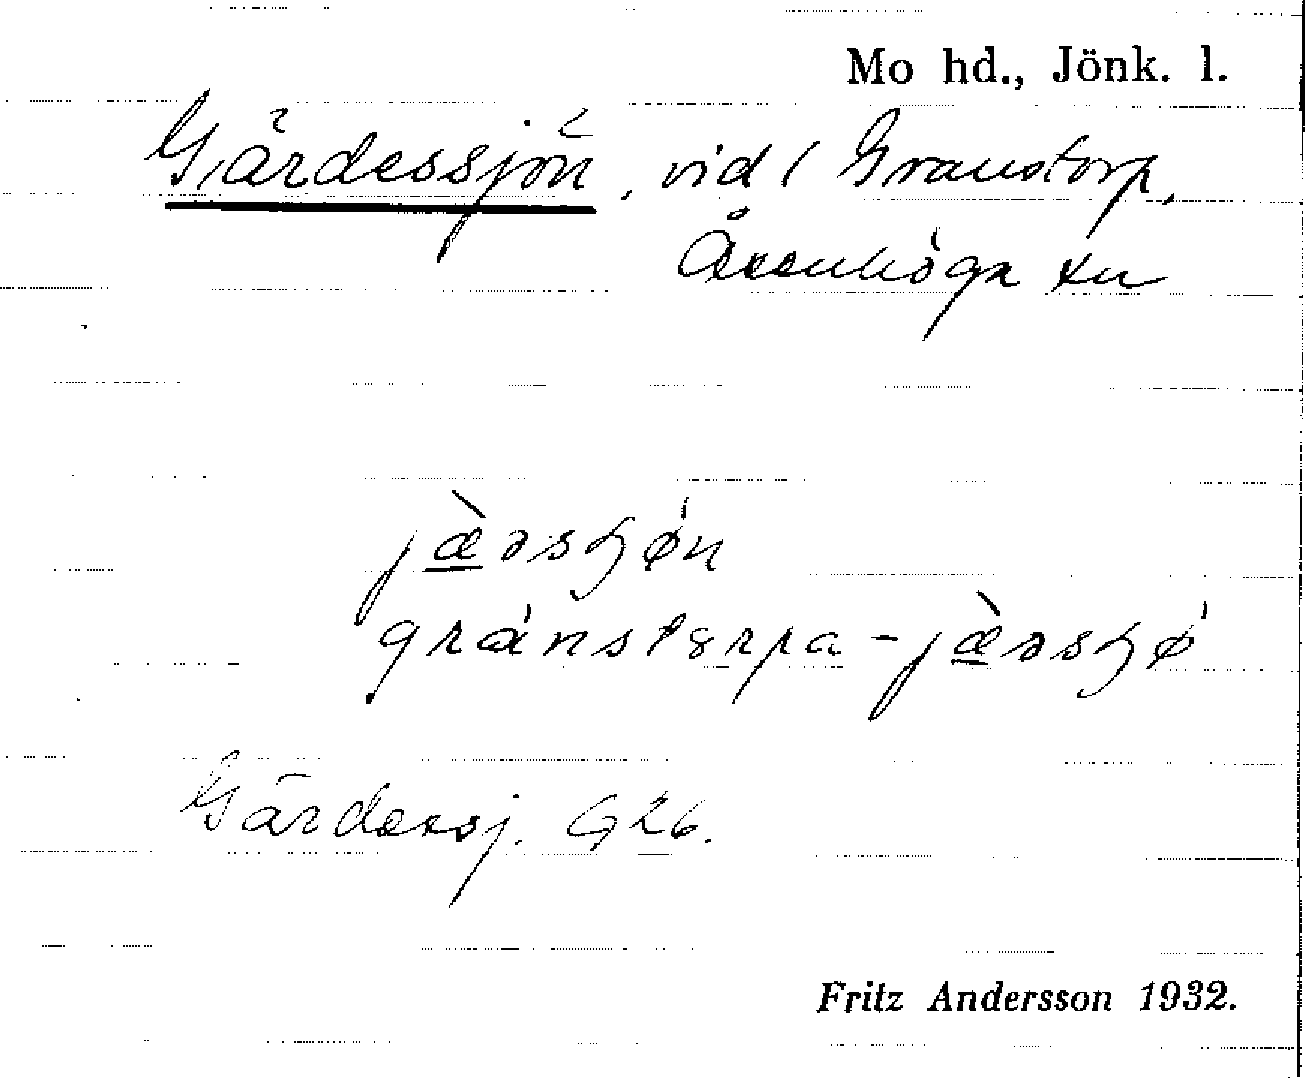 Mo hd., Jönk. l.
Gärdessjön, vid / Granstorp,
Åsenhöga sn
jæ̀əsɧøn
gránstɞrpa-jæ̀əsɧø
Gärdessj. G26.
Fritz Andersson 1932.